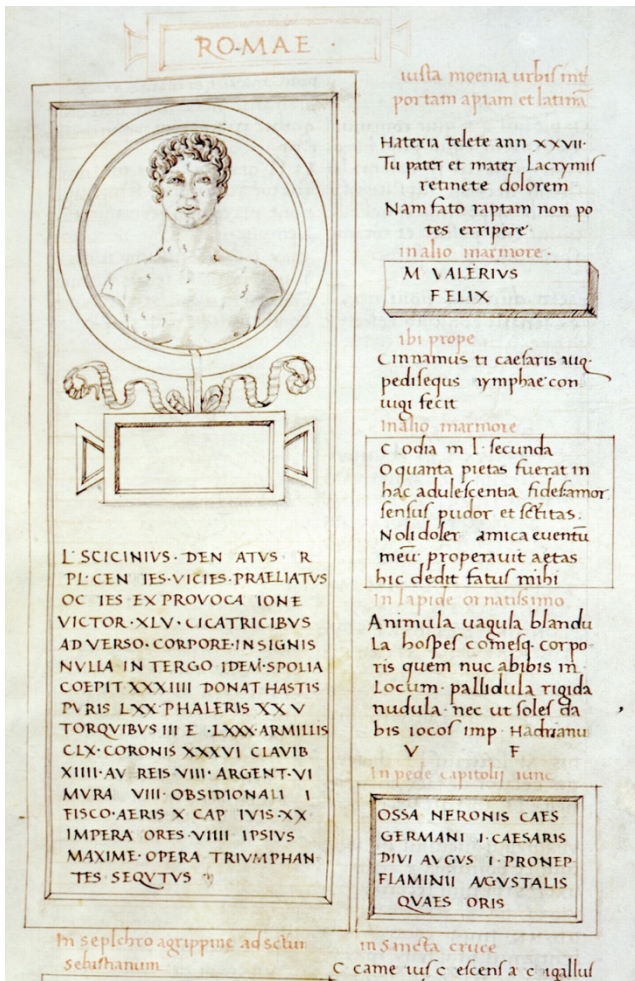 ROMAE
L SCICINIVS·DEN ATVS R
PL·CEN IES·VICIES·PRAELIATVS
OC IES EX PROVOCA IONE
VICTOR·XLV·CICATRICIBVS
ADVERSO·CORPORE·INSIGNIS
NVLLA IN TERGO IDEM·SPOLIA
COEPIT XXXIIII DONAT HASTIS
PVRIS LXX PHALERIS XXV
TORQVIBVS III E ·LXXX·ARMILLIS
CLX·CORONIS XXXVI CLAVIB
XIIII·AV REIS VIII·ARGENT·VI
MVRA VIII·OBSIDIONALI I
FISCO·AERIS X CAP IVIS·XX
IMPERA ORES·VIIII IPSIVS
MAXIME·OPERA TRIVMPHAN
TES SEQVTVS
In seplchro agrippine ad sctum
sebastianum
iuxta moenia urbis int
portam apiam et latinā
Hateria telete ann xxvii·
Tu pater et mater Lacrymis
retinete dolorem
Nam fato raptam non po
tes erripere
in alio marmore·
M VALERIVS
FELIX
ibi prope
Cinnamus ti caesaris aug·
pedisequs nymphae con
iugi fecit
In alio marmore
C odia m l secunda
O quanta pietas fuerat in
hac adulescentia fides amor
sensus pudor et sctitas·
Noli doler amica eventū
meū properavit aetas
hic dedit fatus mihi
In lapide ornatissimo
Animula vagula blandu
La hospes comesq· corpo
ris quem nuc abibis in
Locum· pallidula rigida
nudula· nec ut soles da
bis iocos imp Hadrianu
V F
In pede capitolii iunc
OSSA NERONIS CAES
GERMANI I·CAESARIS
DIVI AVGVS I·PRONEP
FLAMINII AVGVSTALIS
QVAES ORIS
in sancta cruce